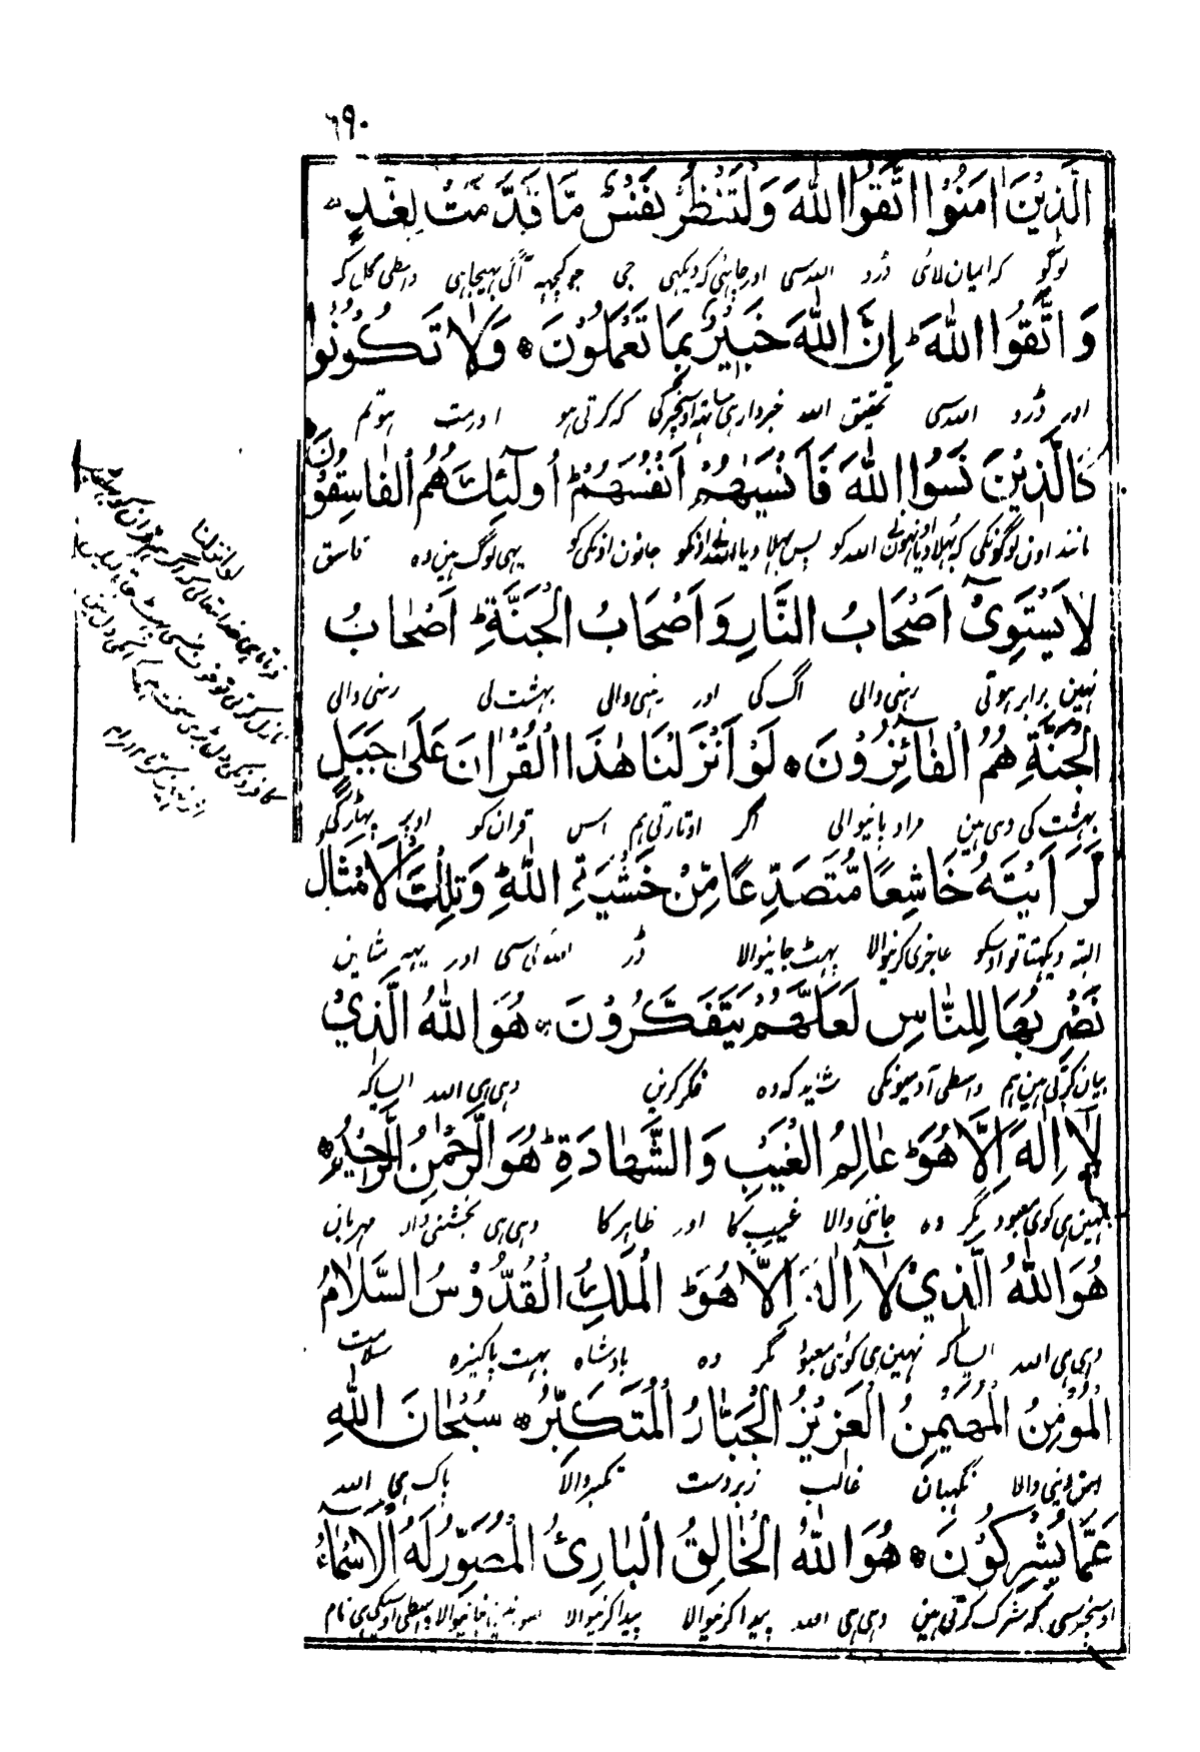 ٦٩٠
الَّذِيْنَ اٰمَنُوْا اتَّقُوا اللّٰهَ وَلْتَنْظُرْ نَفْسٌ مَّا قَدَّمَتْ لِغَدٍ
لوگو کہ ایمان لائی ڈرو اللہ سی اور چاہئی کہ دیکھی جی جو کچھہ آگی بھیجا ہی واسطی کل کے
وَاتَّقُوا اللّٰهَ ؕ اِنَّ اللّٰهَ خَبِيْرٌۢ بِمَا تَعْمَلُوْنَ ۞ وَلَا تَكُوْنُوْا
اور ڈرو اللہ سی تحقیق اللہ خبردار ہی ساتھہ اوسچیز کی کہ کرتی ہو اور مت ہو تم
كَالَّذِيْنَ نَسُوا اللّٰهَ فَاَنْسٰىهُمْ اَنْفُسَهُمْ ؕ اُولٰٓئِكَ هُمُ الْفَاسِقُوْنَ
مانند اون لوگونکی کہ بہلا دیا اونہونے اللہ کو پس بہلا دیا اللہ نے اونکو جانون اونکی کو یہی لوگ ہین وہ فاسق
لَا يَسْتَوِيْٓ اَصْحَابُ النَّارِ وَاَصْحَابُ الْجَنَّةِ ؕ اَصْحَابُ
نہین برابر ہوتی رہنی والی آگ کی اور رہنی والی بہشت کی رہنی والی
الْجَنَّةِ هُمُ الْفَآئِزُوْنَ ۞ لَوْ اَنْزَلْنَا هٰذَا الْقُرْاٰنَ عَلٰى جَبَلٍ
بہشت کی وہی ہین مراد پانیوالی اگر اوتارتی ہم اس قران کو اوپر پہاڑ کی
لَّرَاَيْتَهٗ خَاشِعًا مُّتَصَدِّعًا مِّنْ خَشْيَةِ اللّٰهِ ؕ وَتِلْكَ الْاَمْثَالُ
البتہ دیکہتا تو اوسکو عاجزی کرنیوالا پہٹ جانیوالا ڈر اللہ کی سی اور یہہ مثالین
نَضْرِبُهَا لِلنَّاسِ لَعَلَّهُمْ يَتَفَكَّرُوْنَ ۞ هُوَ اللّٰهُ الَّذِيْ
بیان کرتی ہین ہم واسطی آدمیونکی شاید کہ وہ فکر کرین وہی ہی اللہ ایسا کہ
لَآ اِلٰهَ اِلَّا هُوَ ؕ عٰالِمُ الْغَيْبِ وَالشَّهَادَةِ ؕ هُوَ الرَّحْمٰنُ الرَّحِيْمُ ۞
نہین ہی کوئی معبود مگر وہ جاننی والا غیب کا اور ظاہر کا وہی ہی بخشنی والا مہربان
هُوَ اللّٰهُ الَّذِيْ لَآ اِلٰهَ اِلَّا هُوَ ؕ الْمَلِكُ الْقُدُّوْسُ السَّلَامُ
وہی ہی اللہ ایسا کہ نہین ہی کوئی معبود مگر وہ بادشاہ بہت پاکیزہ سلامت
الْمُؤْمِنُ الْمُهَيْمِنُ الْعَزِيْزُ الْجَبَّارُ الْمُتَكَبِّرُ ۞ سُبْحَانَ اللّٰهِ
امن دینی والا نگہبان غالب زبردست تکبر والا پاک ہی اللہ
عَمَّا يُشْرِكُوْنَ ۞ هُوَ اللّٰهُ الْخَالِقُ الْبَارِئُ الْمُصَوِّرُ لَهُ الْاَسْمَآءُ
اوسچیز سی کہ شرک کرتی ہین وہی ہی اللہ پیدا کرنیوالا پیدا کرنیوالا صورتین بنانیوالا واسطی اوسکی ہی نام
لو انزلنا